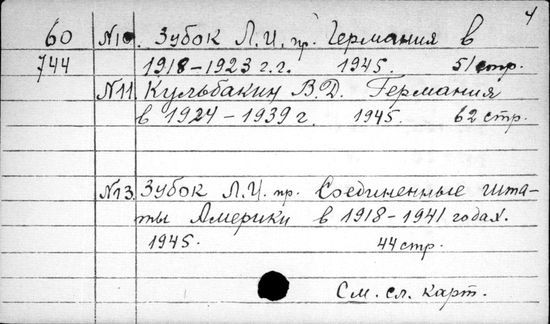 4
60 N10. Зубок Л.И. пр. Германия в
744 1918-1923 г.г. 1945. 51 стр.
N11. Кульбакин В.Д. Германия
в 1924-1939 г. 1945. 62 стр.
N13. Зубок Л.И. пр. Соединенные шта-
ты Америки в 1918-1941 годах.
1945. 44 стр.
См. сл. карт.